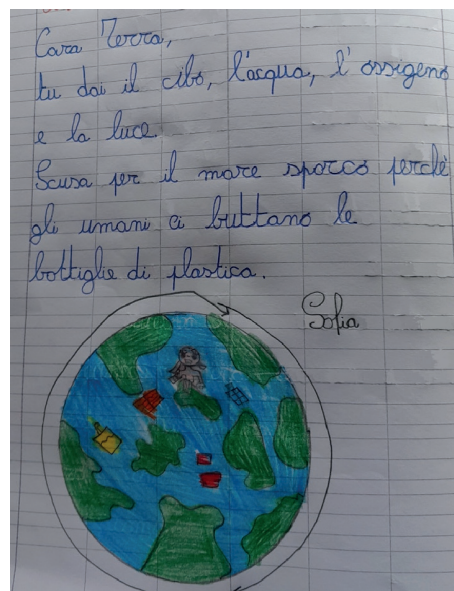 Cara Terra,
tu dai il cibo, l'acqua, l'ossigeno
e la luce.
Scusa per il mare sporco perchè
gli umani ci buttano le
bottiglie di plastica.
Sofia